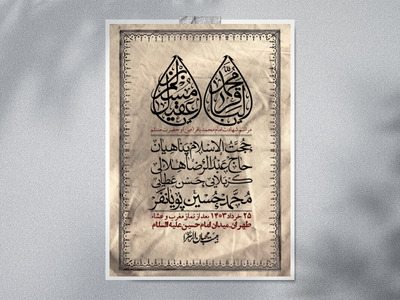 محمد باقر
مسلم بن عقیل
مراسم شهادت امام محمد باقر(ص) و حضرت مسلم
حجت الاسلام پناهیان
حاج عبدالرضا هلالی
کربلایی حسن عطایی
محمدحسین پویانفر
۲۵ خرداد ۱۴۰۳ بعد از نماز مغرب و عشاء
طهران.میدان امام حسین علیه السلام